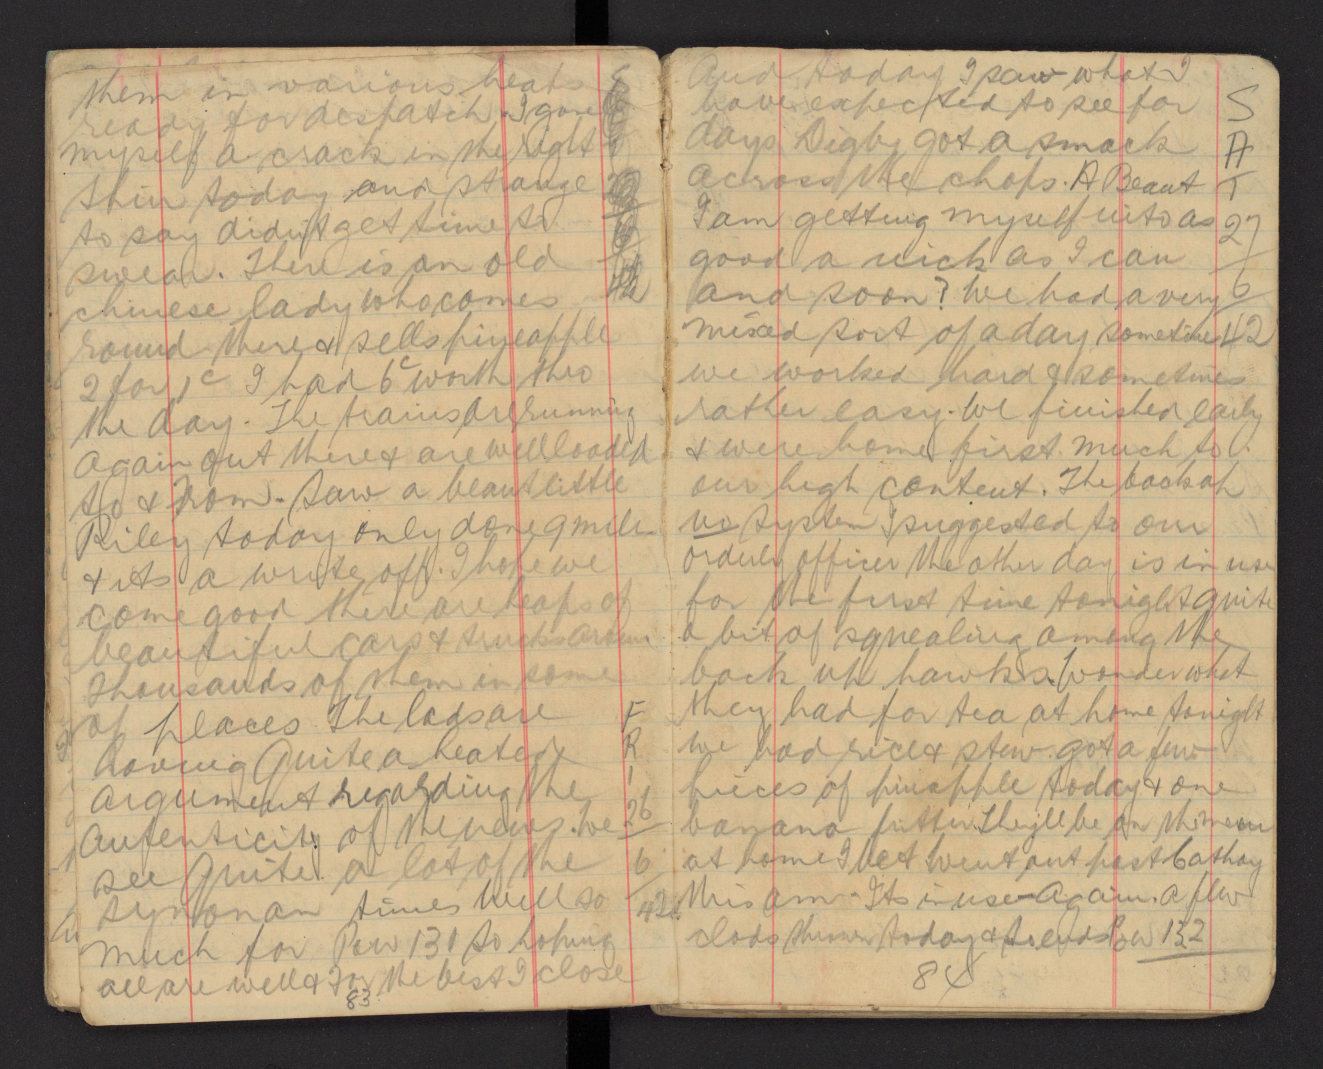 them in various heaps
ready for despatch. I gave
myself a crack in the right
shin today and strange
to say didn't get time to
swear. There is an old
chinese lady who comes
round there & sells pineapple
2 for 1c I had 6c worth thro
the day. The trains are running
again out there & are well loaded
to & from. Saw a beaut little
Riley today only done 9 mile
& its a write off. I hope we
come good there are heaps of
beautiful cars & trucks around
thousands of them in some
of places. The lads are
having quite a heated
argument regarding the
autenticity of the news. We
see quite a lot of the
syntonan times well so
much for Pow 131 so hoping
all are well & for the best I close
F
R
I
26
6
42
83
And today I saw what I
have expected to see for
days Digby got a smack
across the chops. A Beaut
I am getting myself into as
good a nick as I can
and soon? We had a very
mixed sort of a day sometimes
we worked hard & sometimes
rather easy. We finished early
& were home first much to
our high content. The back up
no system I suggested to our
orderly officer the other day is in use
for the first time tonight quite
a bit of squealing among the
back up hawks. Wonder what
they had for tea at home tonight
We had rice & stew. got a few
pieces of pinapple today & one
banana fritter. They'll be on the menu
at home I bet. Went out past Cathay
this am. Its in use again. a few
clods thrown today & so ends Pow 132
S
A
T
27
6
42
84